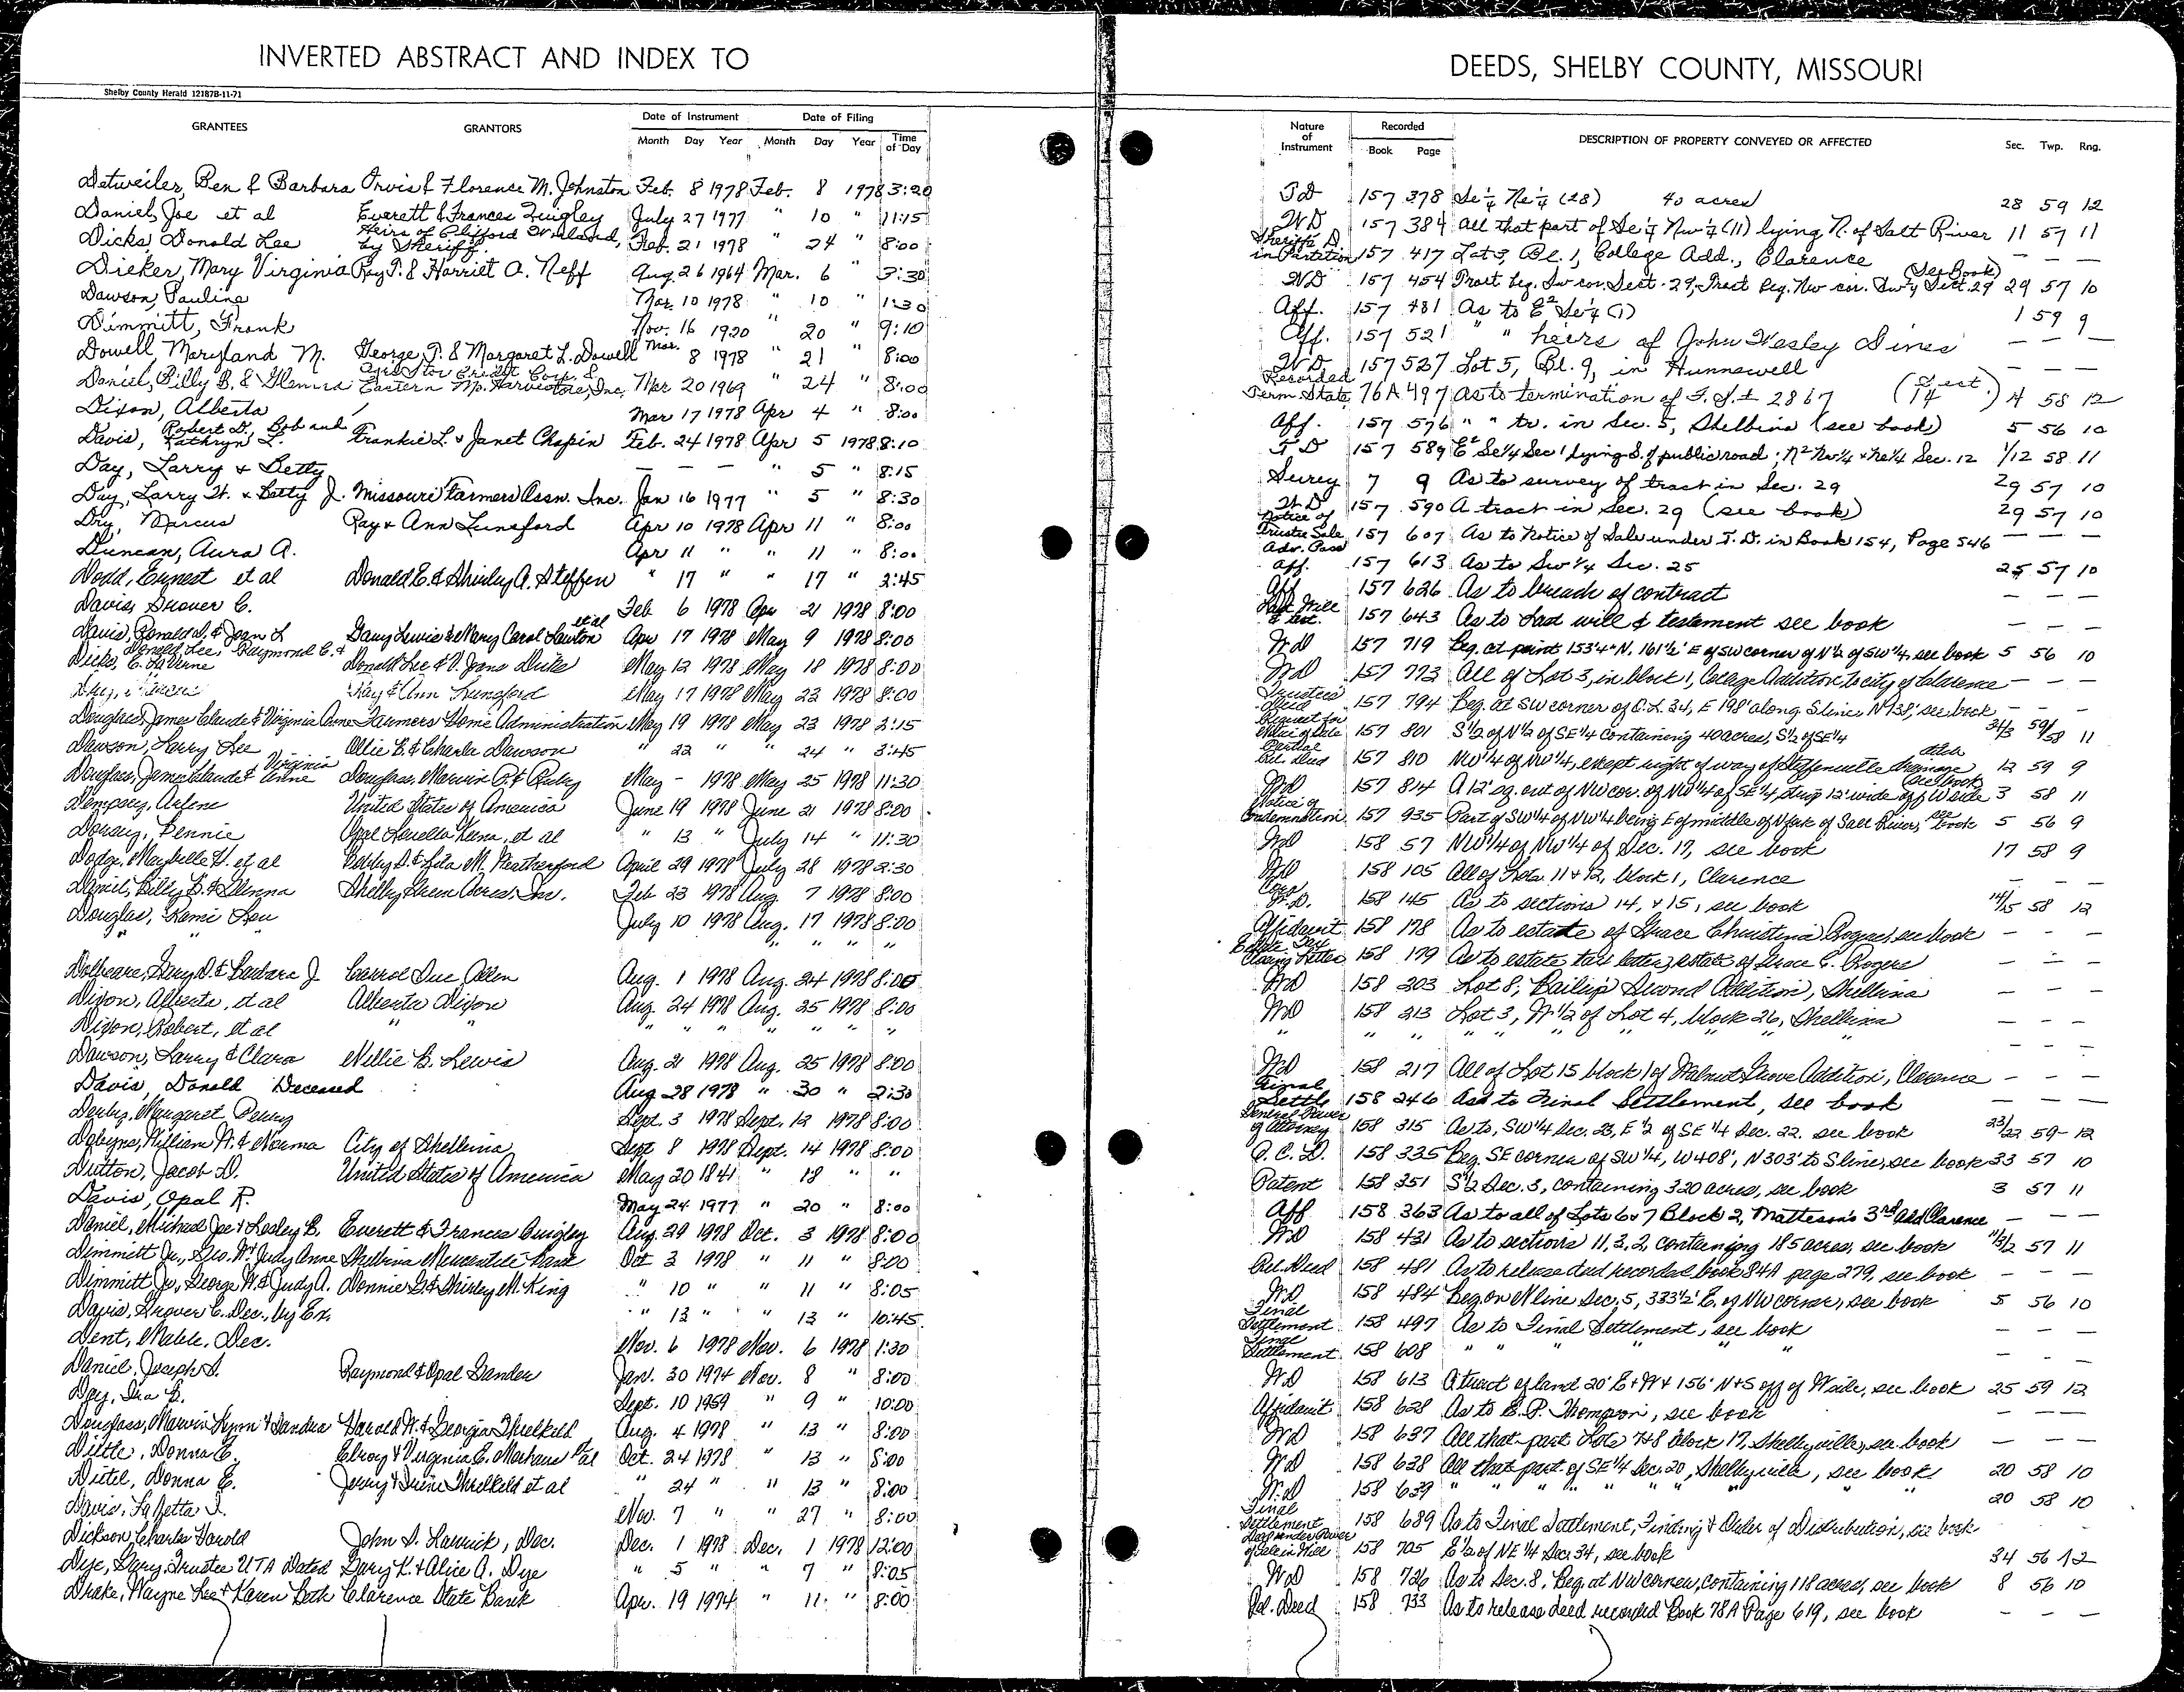 INVERTED ABSTRACT AND INDEX TO
DEEDS, SHELBY COUNTY, MISSOURI
Shelby County Herald 12187B-11-71
GRANTEES GRANTORS Date of Instrument Date of Filing
Month Day Year Month Day Year Time of Day
Nature of Instrument Recorded Book Page DESCRIPTION OF PROPERTY CONVEYED OR AFFECTED Sec. Twp. Rng.
Detweiler, Ben & Barbara Orvis & Florence M. Johnston Feb. 8 1978 Feb. 8 1978 3:20 157 378 Se¼ Ne¼ (28) 40 acres 28 59 12
Daniel, Joe et al Everett & Frances Quigley July 27 1977 " 10 " 11:15 WD 157 384 all that part of Se¼ Nw¼ (11) lying N. of Salt River 11 57 11
Dicks, Donald Lee Heirs of Clifford by Sheriff Feb. 21 1978 " 24 " 8:00 Sheriff's D. in Partition 157 417 Lot 3, Bl. 1, College Add., Clarence — — —
Dieker, Mary Virginia Roy T. & Harriet A. Neff Aug. 26 1964 Mar. 6 " 3:30 WD 157 454 Tract beg. Sw cor. Sect. 29, Tract beg. Nw cor. Sw¼ Sect. 29 (See Book) 29 57 10
Dawson, Pauline Mar. 10 1978 " 10 " 1:30 Aff. 157 481 As to E² Se¼ (1) 1 59 9
Dimmitt, Frank Nov. 16 1920 " 20 " 9:10 Aff. 157 521 " " heirs of John Wesley Dines — — —
Dowell, Maryland M. George T. & Margaret L. Dowell Mar. 8 1978 " 21 " 8:00 WD 157 527 Lot 5, Bl. 9, in Hunnewell — — —
Daniel, Billy B. & Glenna Agristor Credit Corp. & Eastern Mo. Harvestore, Inc. Mar 20 1969 " 24 " 8:00 Recorded Term State. 76A 497 As to termination of 2867 58 12
Dixon, Alberta Mar 17 1978 Apr 4 " 8:00 Aff. 157 576 " " tr. in Sec. 5, Shelbina (see book) 5 56 10
Davis, Robert D., Bob and Kathryn L. Frankie L. & Janet Chapin Feb. 24 1978 Apr 5 1978 8:10 157 589 E² Se¼ Sec 1 lying S. of public road; N² Nw¼ & Ne¼ Sec. 12 1/12 58 11
Day, Larry & Betty — — — " 5 " 8:15 Survey 7 9 As to survey of tract in Sec. 29 29 57 10
Day, Larry H. & Betty J. Missouri Farmers Assn. Inc. Jan 16 1977 " 5 " 8:30 W.D 157 590 A tract in Sec. 29 (see book) 29 57 10
Dry, Marcus Ray & Ann Lunsford Apr 10 1978 Apr 11 " 8:00 Notice of Trustee Sale 157 607 As to Notice of Sale under T. D. in Book 154, Page 546 — — —
Duncan, Aura A. Apr 11 " " 11 " 8:00 Adv. Poss aff. 157 613 As to Sw ¼ Sec. 25 25 57 10
Dodd, Ernest et al Donald E. & Shirley A. Steffen " 17 " " 17 " 2:45 Aff 157 626 As to breach of contract — — —
Davis, Grover C. Feb 6 1978 Apr 21 1978 8:00 Last Will & test. 157 643 As to Last will & testament see book — — —
Davis, Ronald D. & Joan L Gary Lewis & Mary Carol Lawton et al Apr 17 1978 May 9 1978 8:00 WD 157 719 Beg. at point 153'4" N. 161½' E of SW corner of N½ of SW¼, see book 5 56 10
Dicks, Donald Lee, Raymond C. & C. LaVerne Donald Lee & V. Joane Dicks May 12 1978 May 18 1978 8:00 WD 157 773 All of Lot 3, in block 1, College Addition to city of Clarence — — —
Ray & Ann Lunsford May 17 1978 May 23 1978 8:00 Trustees Deed 157 794 Beg. at SW corner of O.L. 34, E 198' along S line, N 738', see book — — —
Douglass, James Claude & Virginia Anne Farmers Home Administration May 19 1978 May 23 1978 2:15 Request for Notice of Sale 157 801 S½ of N½ of SE¼ containing 40 acres, S½ of SE¼ 34/3 59/58 11
Dawson, Larry Lee Ollie B. & Charla Dawson " 22 " " 24 " 3:45 Partial Rel. Deed 157 810 NW¼ of NW¼, except right of way of Steffenville drainage ditch 12 59 9
Douglass, James Claude & Virginia Anne Douglass, Marvin R. & Ruby May - 1978 May 25 1978 11:30 WD 157 814 A 12' sq. out of NW cor. of NW¼ of SE¼, strip 12' wide off W side see book 3 58 11
Dempsey, Arlene United States of America June 19 1978 June 21 1978 8:20 Notice of Condemnation 157 935 Part of SW¼ of NW¼ being E of middle of N fork of Salt River, see book 5 56 9
Dorsey, Bennie Opal Louella Keena, et al " 13 " July 14 " 11:30 WD 158 57 NW¼ of NW¼ of Sec. 17, see book 17 58 9
Dodge, Maybelle H. et al Bobby D. & Lila M. Weatherford April 29 1978 July 28 1978 2:30 WD 158 105 All of Lots 11 & 12, block 1, Clarence — — —
Daniel, Billy B. & Glenna Shelby Green Acres, Inc. Feb 23 1978 Aug. 7 1978 8:00 Corr. W.D. 158 145 As to sections 14, & 15, see book 14/15 58 12
Douglas, Remi Lou July 10 1978 Aug. 17 1978 8:00 Affidavit 158 178 As to estate of Grace Christina Rogers, see book — — —
" " " " " " Estate Tax Closing Letter 158 179 As to estate tax letter, estate of Grace C. Rogers — — —
Dolbeare, Gary D. & Barbara J Carrol Sue Allen Aug. 1 1978 Aug. 24 1978 8:00 WD 158 203 Lot 8, Bailey's Second Addition, Shelbina — — —
Dixon, Alberta, et al Alberta Dixon Aug. 24 1978 Aug. 25 1978 8:00 WD 158 213 Lot 3, W½ of Lot 4, block 26, Shelbina — — —
Dixon, Robert, et al " " " " " " " " " " " " " " " " " — — —
Dawson, Larry & Clara Nellie B. Lewis Aug. 21 1978 Aug. 25 1978 8:00 WD 158 217 All of Lot 15 block 1 of Walnut Grove Addition, Clarence — — —
Davis, Donald Deceased Aug 28 1978 " 30 " 2:30 Final Settle 158 246 As to Final Settlement, see book — — —
Derby, Margaret Penny Sept. 3 1978 Sept. 12 1978 8:00 General Power of Attorney 158 315 As to, SW¼ Sec. 23, E ½ of SE ¼ Sec. 22. see book 23/22 59 12
Dobyns, William W. & Norma City of Shelbina Sept 8 1978 Sept. 14 1978 8:00 Q.C.D. 158 335 Beg. SE corner of SW ¼, W 408', N 303' to S line, see book 33 57 10
Dutton, Jacob D. United States of America May 20 1841 " 18 " " Patent 158 351 S½ Sec. 3, containing 320 acres, see book 3 57 11
Davis, Opal R. May 24 1977 " 20 " 8:00 Aff 158 363 As to all of Lots 6 & 7 Block 2, Matteson's 3rd Add Clarence — — —
Daniel, Michael Joe & Lesley B. Everett & Frances Quigley Aug. 29 1978 Oct. 3 1978 8:00 WD 158 431 As to sections 11, 3, 2, containing 185 acres, see book 11/3/2 57 11
Dimmitt Jr., Geo. W. & Judy Anne Shelbina Mercantile Bank Oct 3 1978 " 11 " 8:00 Rel. Deed 158 481 As to release deed recorded book 84A page 279, see book — — —
Dimmitt Jr., George W. & Judy A. Donnie G. & Shirley M. King " 10 " " 11 " 8:05 WD 158 484 Beg. on N line Sec. 5, 333½' E. of NW corner, see book 5 56 10
Davis, Grover C. Dec., by Ex. " 13 " " 13 " 10:45 Final Settlement 158 497 As to Final Settlement, see book — — —
Dent, Mable, Dec. Nov. 6 1978 Nov. 6 1978 1:30 Final Settlement 158 608 " " " " " — — —
Daniel, Joseph S. Raymond & Opal Sanders Jan. 30 1974 Nov. 8 " 8:00 WD 158 613 A tract of land 20' E & W & 156' N & S off of W side, see book 25 59 12
Day, Ira B. Sept. 10 1959 " 9 " 10:00 Affidavit 158 628 As to E. P. Thompson, see book — — —
Douglass, Marvin Lynn & Sandra Harold W. & Georgia Threlkeld Aug. 4 1978 " 13 " 8:00 WD 158 637 All that part Lots 7 & 8 Block 17, Shelbyville, see book — — —
Donna E. Elroy & Virginia E. et al Oct. 24 1978 " 13 " 8:00 WD 158 638 All that part of SE¼ Sec. 20, Shelbyville, see book 20 58 10
Distel, Donna E. Jerry & Irene Threlkeld et al " 24 " " 13 " 8:00 W.D 158 639 " " " " " " " " 20 58 10
Davis, LaNetta I. Nov. 7 " " 27 " 8:00 Final Settlement 158 689 As to Final Settlement, Finding & Order of Distribution, see book
Dickson, Charles Harold John S. Dec. Dec. 1 1978 Dec. 1 1978 12:00 Deed under Power of Sale in Will 158 705 E½ of NE ¼ Sec. 34, see book 34 56 12
Dye, Gary, Trustee UTA Dated Gary K. & Alice A. Dye " 5 " " 7 " 8:05 WD 158 726 As to Sec. 8, Beg. at NW corner, containing 118 acres, see book 8 56 10
Drake, Wayne Lee & Karen Beth Clarence State Bank Apr. 19 1974 " 11 " 8:00 Rel. Deed 158 733 As to release deed recorded Book 78A Page 619, see book — — —